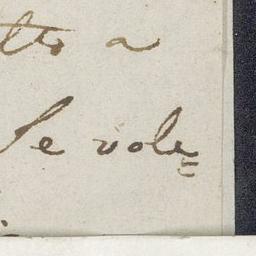 tto a
Se vole=